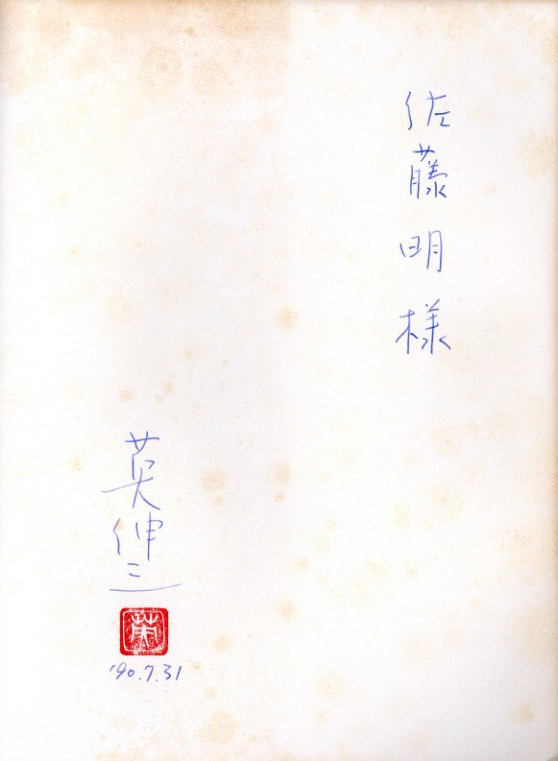 佐藤明様
英伸三
英
'90.7.31